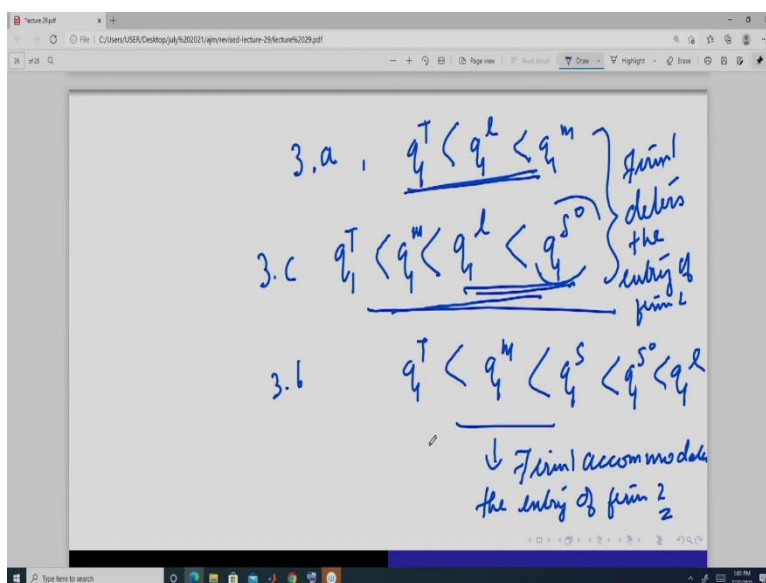 lecture 29.pdf
File | C:/Users/USER/Desktop/july%202021/ajm/revised-lecture-29/lecture%2029.pdf
28 of 28
Page view | Read aloud | Draw Highlight Erase
3.a, q₁ᵀ < q₁ˡ < q₁ᵐ
3.c q₁ᵀ < q₁ᵐ < q₁ˡ < q₁ˢ⁰
Firm 1
deters
the
entry of
firm 2
3.b q₁ᵀ < q₁ᵐ < q₁ˢ < q₁ˢ⁰ < q₁ˡ
↓ Firm 1 accommodates
the entry of firm 2
Type here to search
1:01 PM